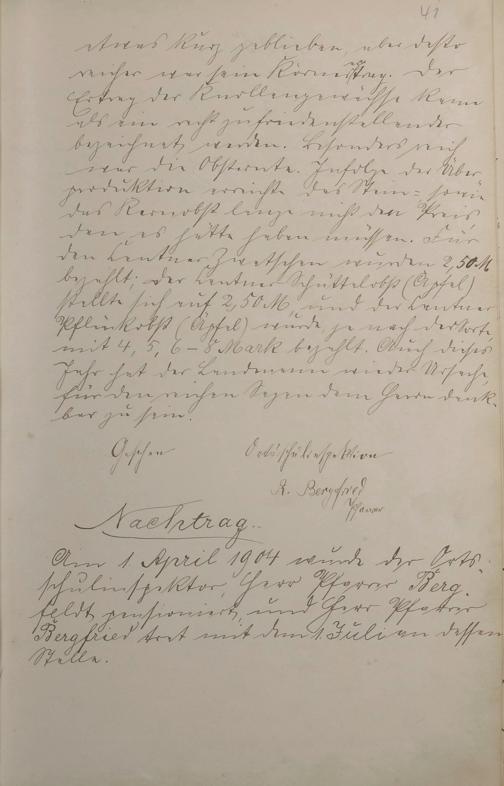 41
etwas kurz geblieben, aber desto
reicher war sein Körnerertrag. Der
Ertrag der Knollengewächse kann
als ein recht zufriedenstellender
bezeichnet werden. Besonders reich
war die Obsternte. Infolge der Über
produktion erreichte das Stein= sowie
das Kernobst lange nicht den Preis
den es hätte haben müssen. Für
den Centner Zwetschen wurden 2,50 M
bezahlt; der Centner Schüttelobst (Äpfel)
stellte sich auf 2,50 M, und der Centner
Pflückobst (Äpfel) wurde, je nach der Sorte,
mit 4, 5, 6 – 8 Mark bezahlt. Auch dieses
Jahr hat der Landmann wieder Ursache,
für den reichen Segen dem Herrn dank-
bar zu sein.
Gesehen Ortsschulinspektion
A. Bergfried
Pfarrer
Nachtrag..
Am 1 April 1904 wurde der Orts-
schulinspektor, Herr Pfarrer Berg-
feldt pensioniert, und Herr Pfarrer
Bergfried trat mit dem 1. Juli an dessen
Stelle.